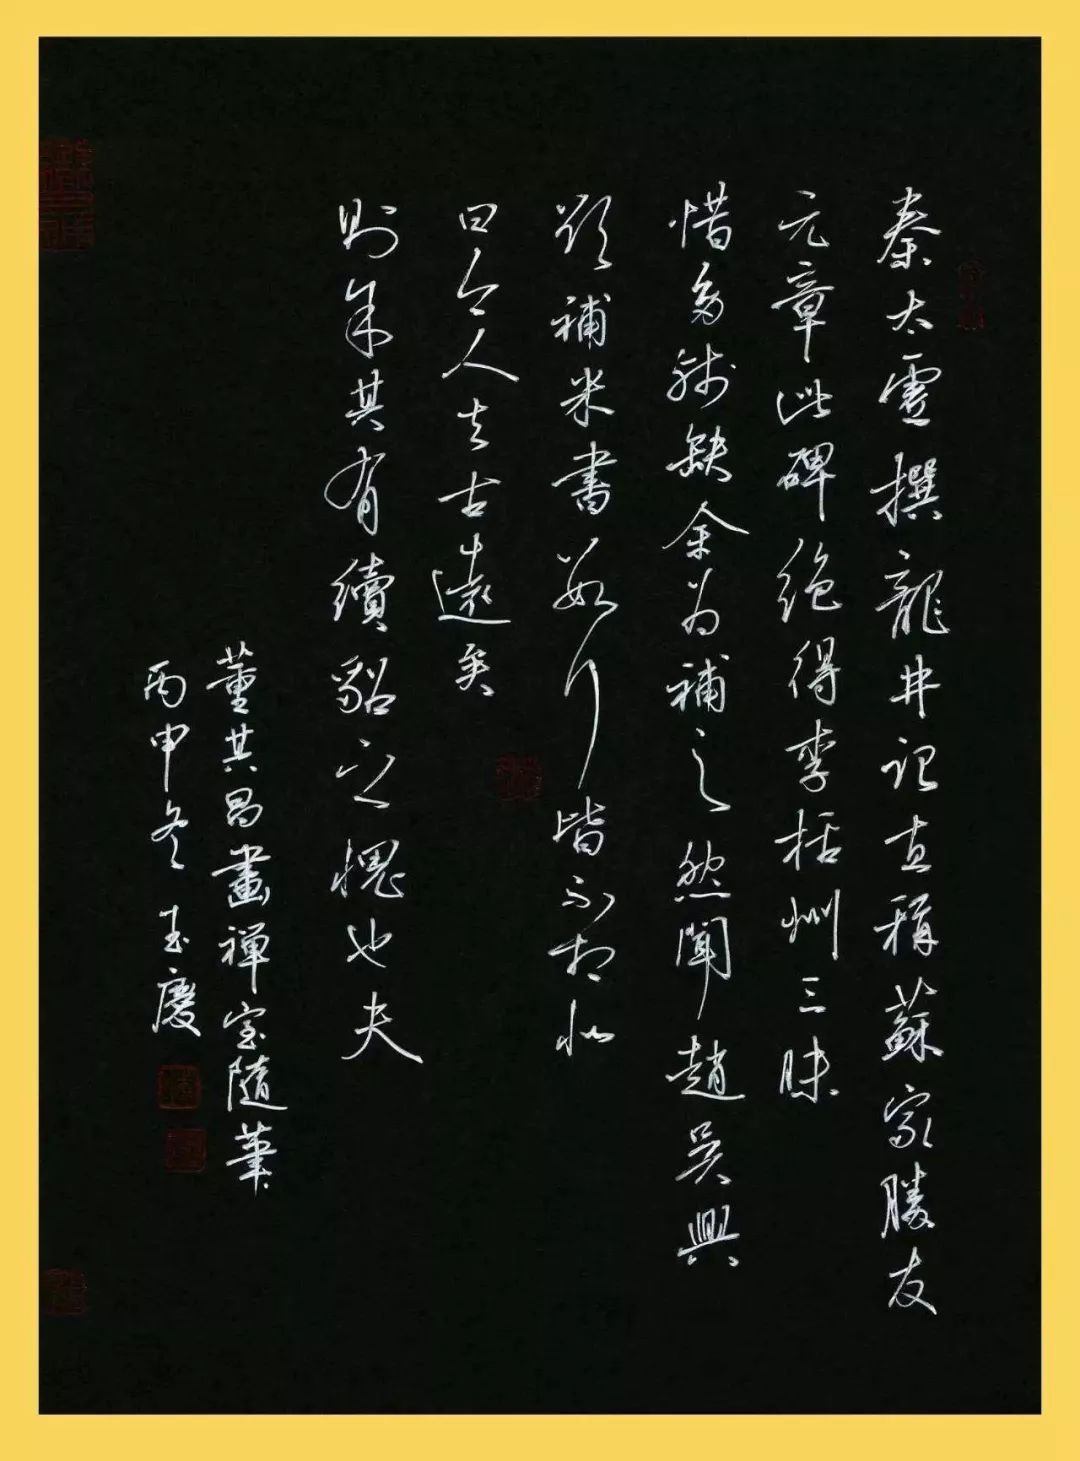 秦太虛撰龍井記直稱蘇家勝友
元章此碑絕得李括州三昧
惜多殘缺余為補之然聞趙吳興
欲補米書數行皆不相似
曰今人去古遠矣
則余其有續貂之愧也夫
董其昌畫禪室隨筆
丙申冬 慶